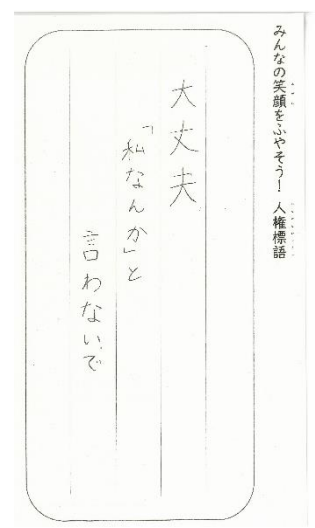 みんなの笑顔をふやそう！ 人権標語
大丈夫
「私なんか」と
言わないで